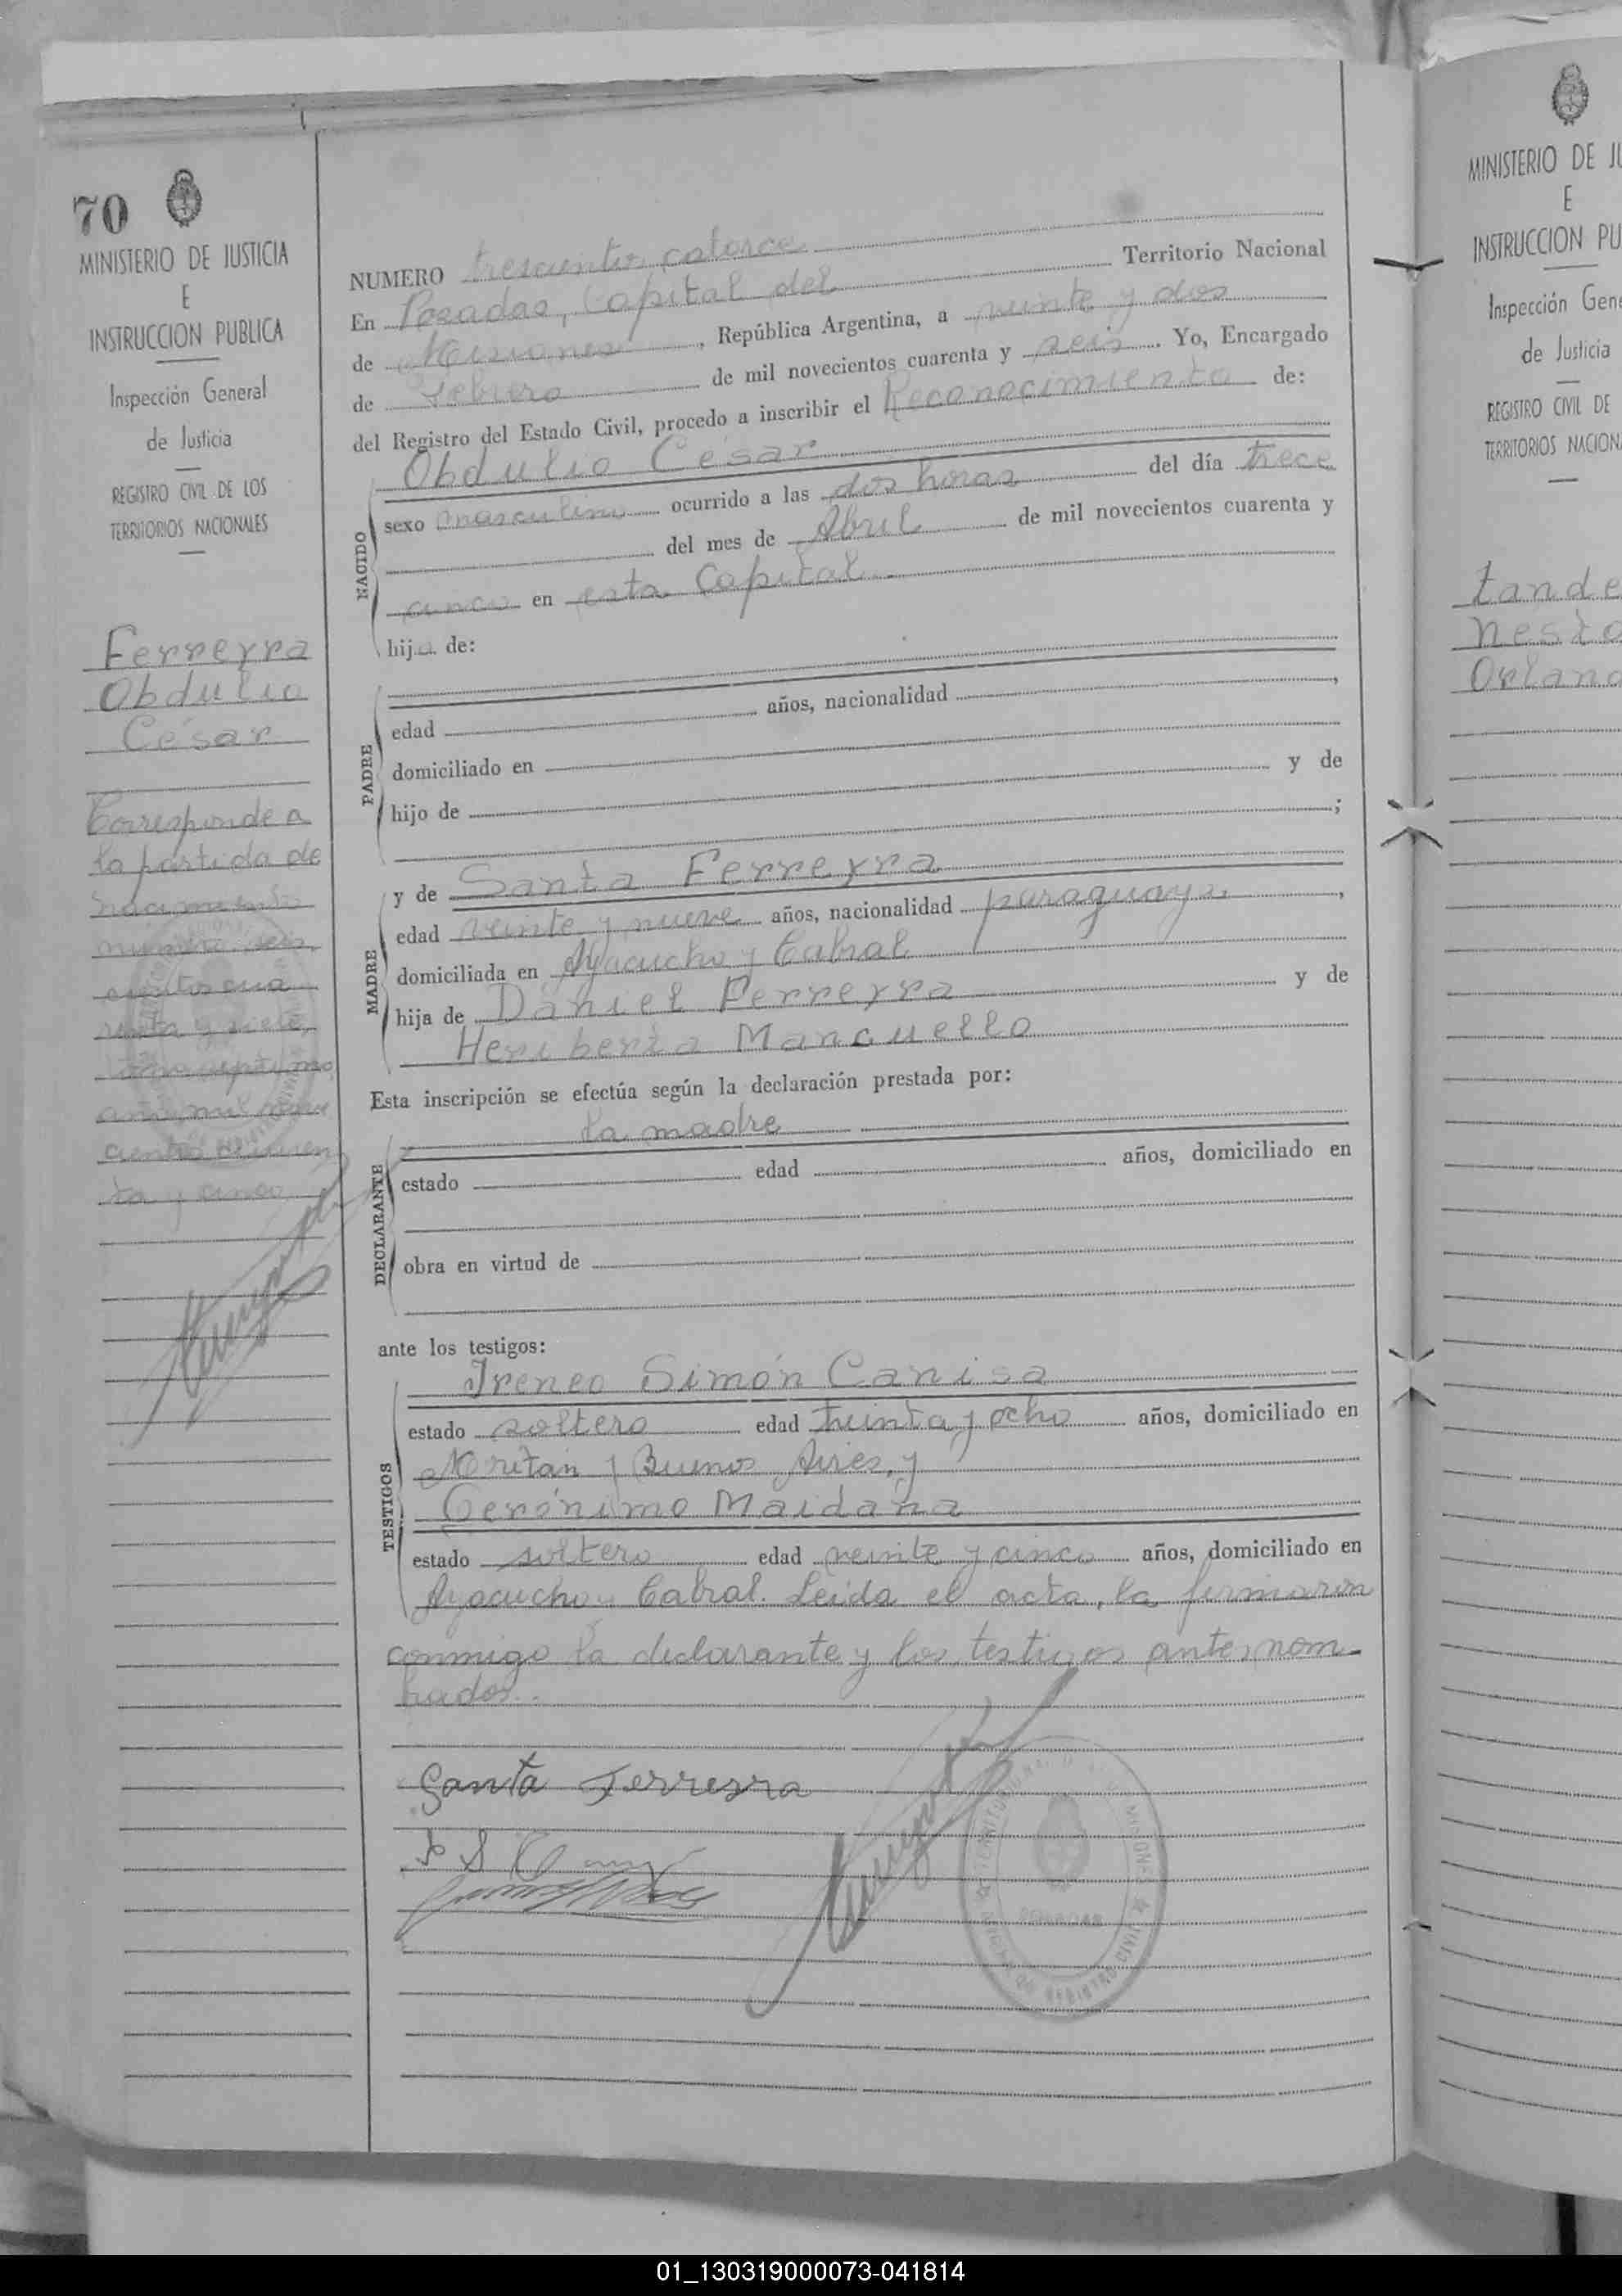 70
MINISTERIO DE JUSTICIA
E
INSTRUCCION PUBLICA
Inspección General
de Justicia
REGISTRO CIVIL DE LOS
TERRITORIOS NACIONALES
Ferreyra
Obdulio
César
Corresponde a
la partida de
nacimiento
número seis
cientos cua
renta y siete,
tomo septimo
año mil nove
cientos cuaren
ta y cinco
NUMERO trescientos catorce
En Posadas, Capital del Territorio Nacional
de Misiones, República Argentina, a veinte y dos
de Febrero de mil novecientos cuarenta y seis. Yo, Encargado
del Registro del Estado Civil, procedo a inscribir el Reconocimiento de:
NACIDO
Obdulio César
sexo masculino ocurrido a las dos horas del día trece
del mes de Abril de mil novecientos cuarenta y
cinco en esta Capital
hijo de:
PADRE
edad años, nacionalidad ,
domiciliado en
hijo de y de
;
MADRE
y de Santa Ferreyra
edad veinte y nueve años, nacionalidad paraguaya,
domiciliada en Ayacucho y Cabral
hija de Daniel Ferreyra y de
Heriberta Mancuello
Esta inscripción se efectúa según la declaración prestada por:
DECLARANTE
la madre
estado edad años, domiciliado en
obra en virtud de
ante los testigos:
TESTIGOS
Ireneo Simón Canisa
estado soltero edad treinta y ocho años, domiciliado en
y Buenos Aires, y
Gerónimo Maidana
estado soltero edad veinte y cinco años, domiciliado en
Ayacucho y Cabral. Leída el acta, la firmaron
conmigo la declarante y los testigos antes nom-
brados.
Santa Ferreyra
MINISTERIO DE JU
E
INSTRUCCION PU
Inspección Gene
de Justicia
REGISTRO CIVIL DE
TERRITORIOS NACION
tande
Nesto
Orland
01_130319000073-041814